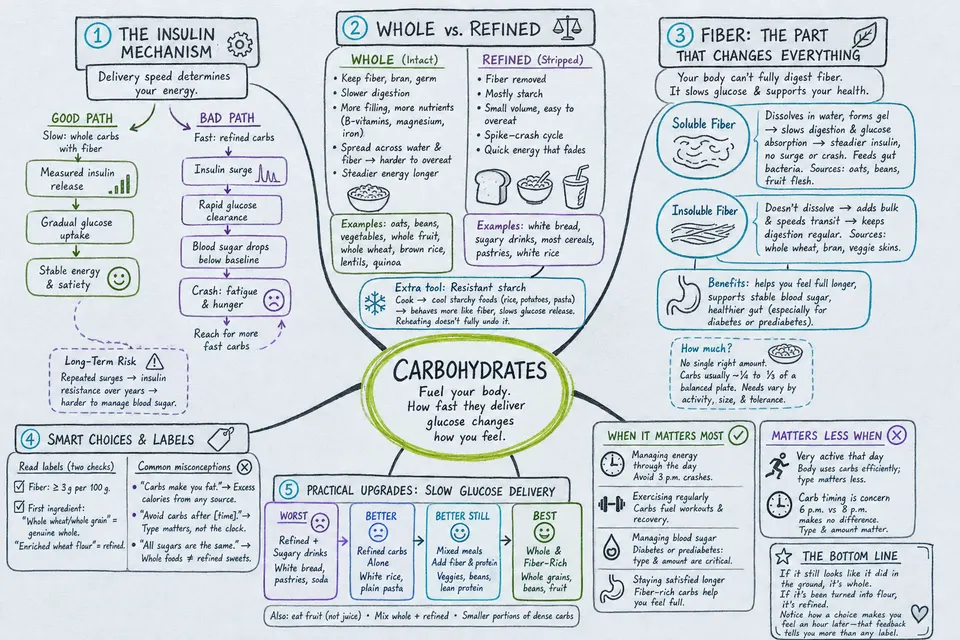 1 THE INSULIN
MECHANISM
Delivery speed determines
your energy.
GOOD PATH
Slow: whole carbs
with fiber
Measured insulin
release
Gradual glucose
uptake
Stable energy
& satiety
BAD PATH
Fast: refined carbs
Insulin surge
Rapid glucose
clearance
Blood sugar drops
below baseline
Crash: fatigue
& hunger
Reach for more
fast carbs
Long-Term Risk
Repeated surges → insulin
resistance over years →
harder to manage blood sugar.
2 WHOLE vs. REFINED
WHOLE (Intact)
• Keep fiber, bran, germ
• Slower digestion
• More filling, more nutrients
(B-vitamins, magnesium,
iron)
• Spread across water &
fiber → harder to overeat
• Steadier energy longer
Examples: oats, beans,
vegetables, whole fruit,
whole wheat, brown rice,
lentils, quinoa
REFINED (Stripped)
• Fiber removed
• Mostly starch
• Small volume, easy to
overeat
• Spike-crash cycle
• Quick energy that fades
Examples: white bread,
sugary drinks, most cereals,
pastries, white rice
Extra tool: Resistant starch
Cook → cool starchy foods (rice, potatoes, pasta)
→ behaves more like fiber, slows glucose release.
Reheating doesn't fully undo it.
3 FIBER: THE PART
THAT CHANGES EVERYTHING
Your body can't fully digest fiber.
It slows glucose & supports your health.
Soluble Fiber
Dissolves in water, forms gel
→ slows digestion & glucose
absorption → steadier insulin,
no surge or crash. Feeds gut
bacteria. Sources: oats, beans,
fruit flesh.
Insoluble Fiber
Doesn't dissolve → adds bulk
& speeds transit → keeps
digestion regular. Sources:
whole wheat, bran, veggie skins.
Benefits: helps you feel full longer,
supports stable blood sugar,
healthier gut (especially for
diabetes or prediabetes).
How much?
No single right amount.
Carbs usually ~¼ to ⅓ of a
balanced plate. Needs vary by
activity, size, & tolerance.
CARBOHYDRATES
Fuel your body.
How fast they deliver
glucose changes
how you feel.
4 SMART CHOICES & LABELS
Read labels (two checks)
Fiber: ≥ 3g per 100 g.
First ingredient:
"Whole wheat/whole grain" =
genuine whole.
"Enriched wheat flour" = refined.
Common misconceptions
• "Carbs make you fat." → Excess
calories from any source.
• "Avoid carbs after [time]." →
Type matters, not the clock.
• "All sugars are the same." →
Whole foods ≠ refined sweets.
5 PRACTICAL UPGRADES: SLOW GLUCOSE DELIVERY
WORST
Refined +
Sugary drinks
White bread,
pastries, soda
BETTER
Refined carbs
Alone
White rice,
plain pasta
BETTER STILL
Mixed meals
Add fiber & protein
Veggies, beans,
lean protein
BEST
Whole &
Fiber-Rich
Whole grains,
beans, fruit
Also: eat fruit (not juice) • Mix whole + refined • Smaller portions of dense carbs
WHEN IT MATTERS MOST
Managing energy
through the day
Avoid 3 p.m. crashes.
Exercising regularly
Carbs fuel workouts &
recovery.
Managing blood sugar
Diabetes or prediabetes:
type & amount are critical.
Staying satisfied longer
Fiber-rich carbs help
you feel full.
MATTERS LESS WHEN
Very active that day
Body uses carbs efficiently;
type matters less.
Carb timing is concern
6 p.m. vs 8 p.m.
makes no difference.
Type & amount matter.
THE BOTTOM LINE
If it still looks like it did in
the ground, it's whole.
If it's been turned into flour,
it's refined.
Notice how a choice makes you
feel an hour later—that feedback
tells you more than any label.